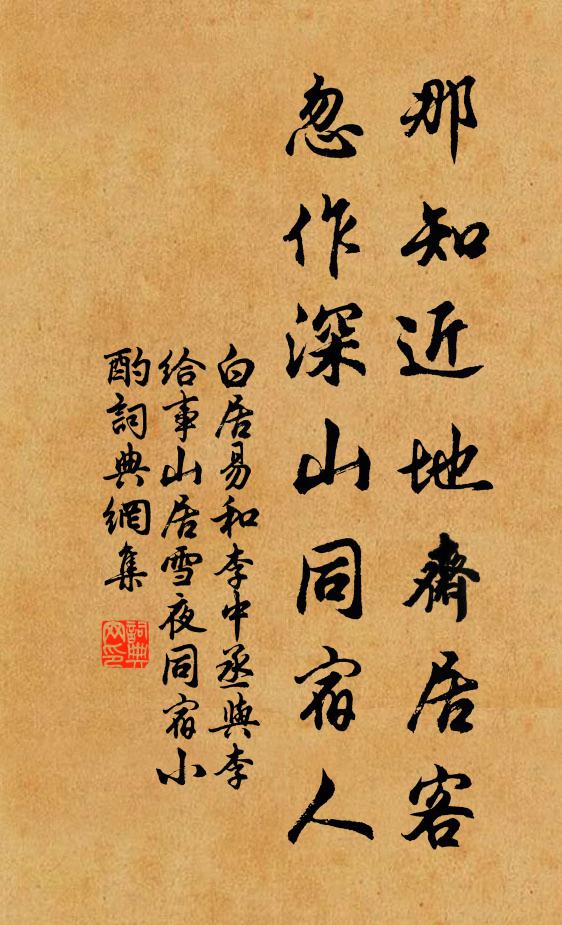 那知近地齋居客
忽作深山同宿人
白居易和李中丞與李
給事山居雪夜同宿小
酌詞典網集
詞典
网印